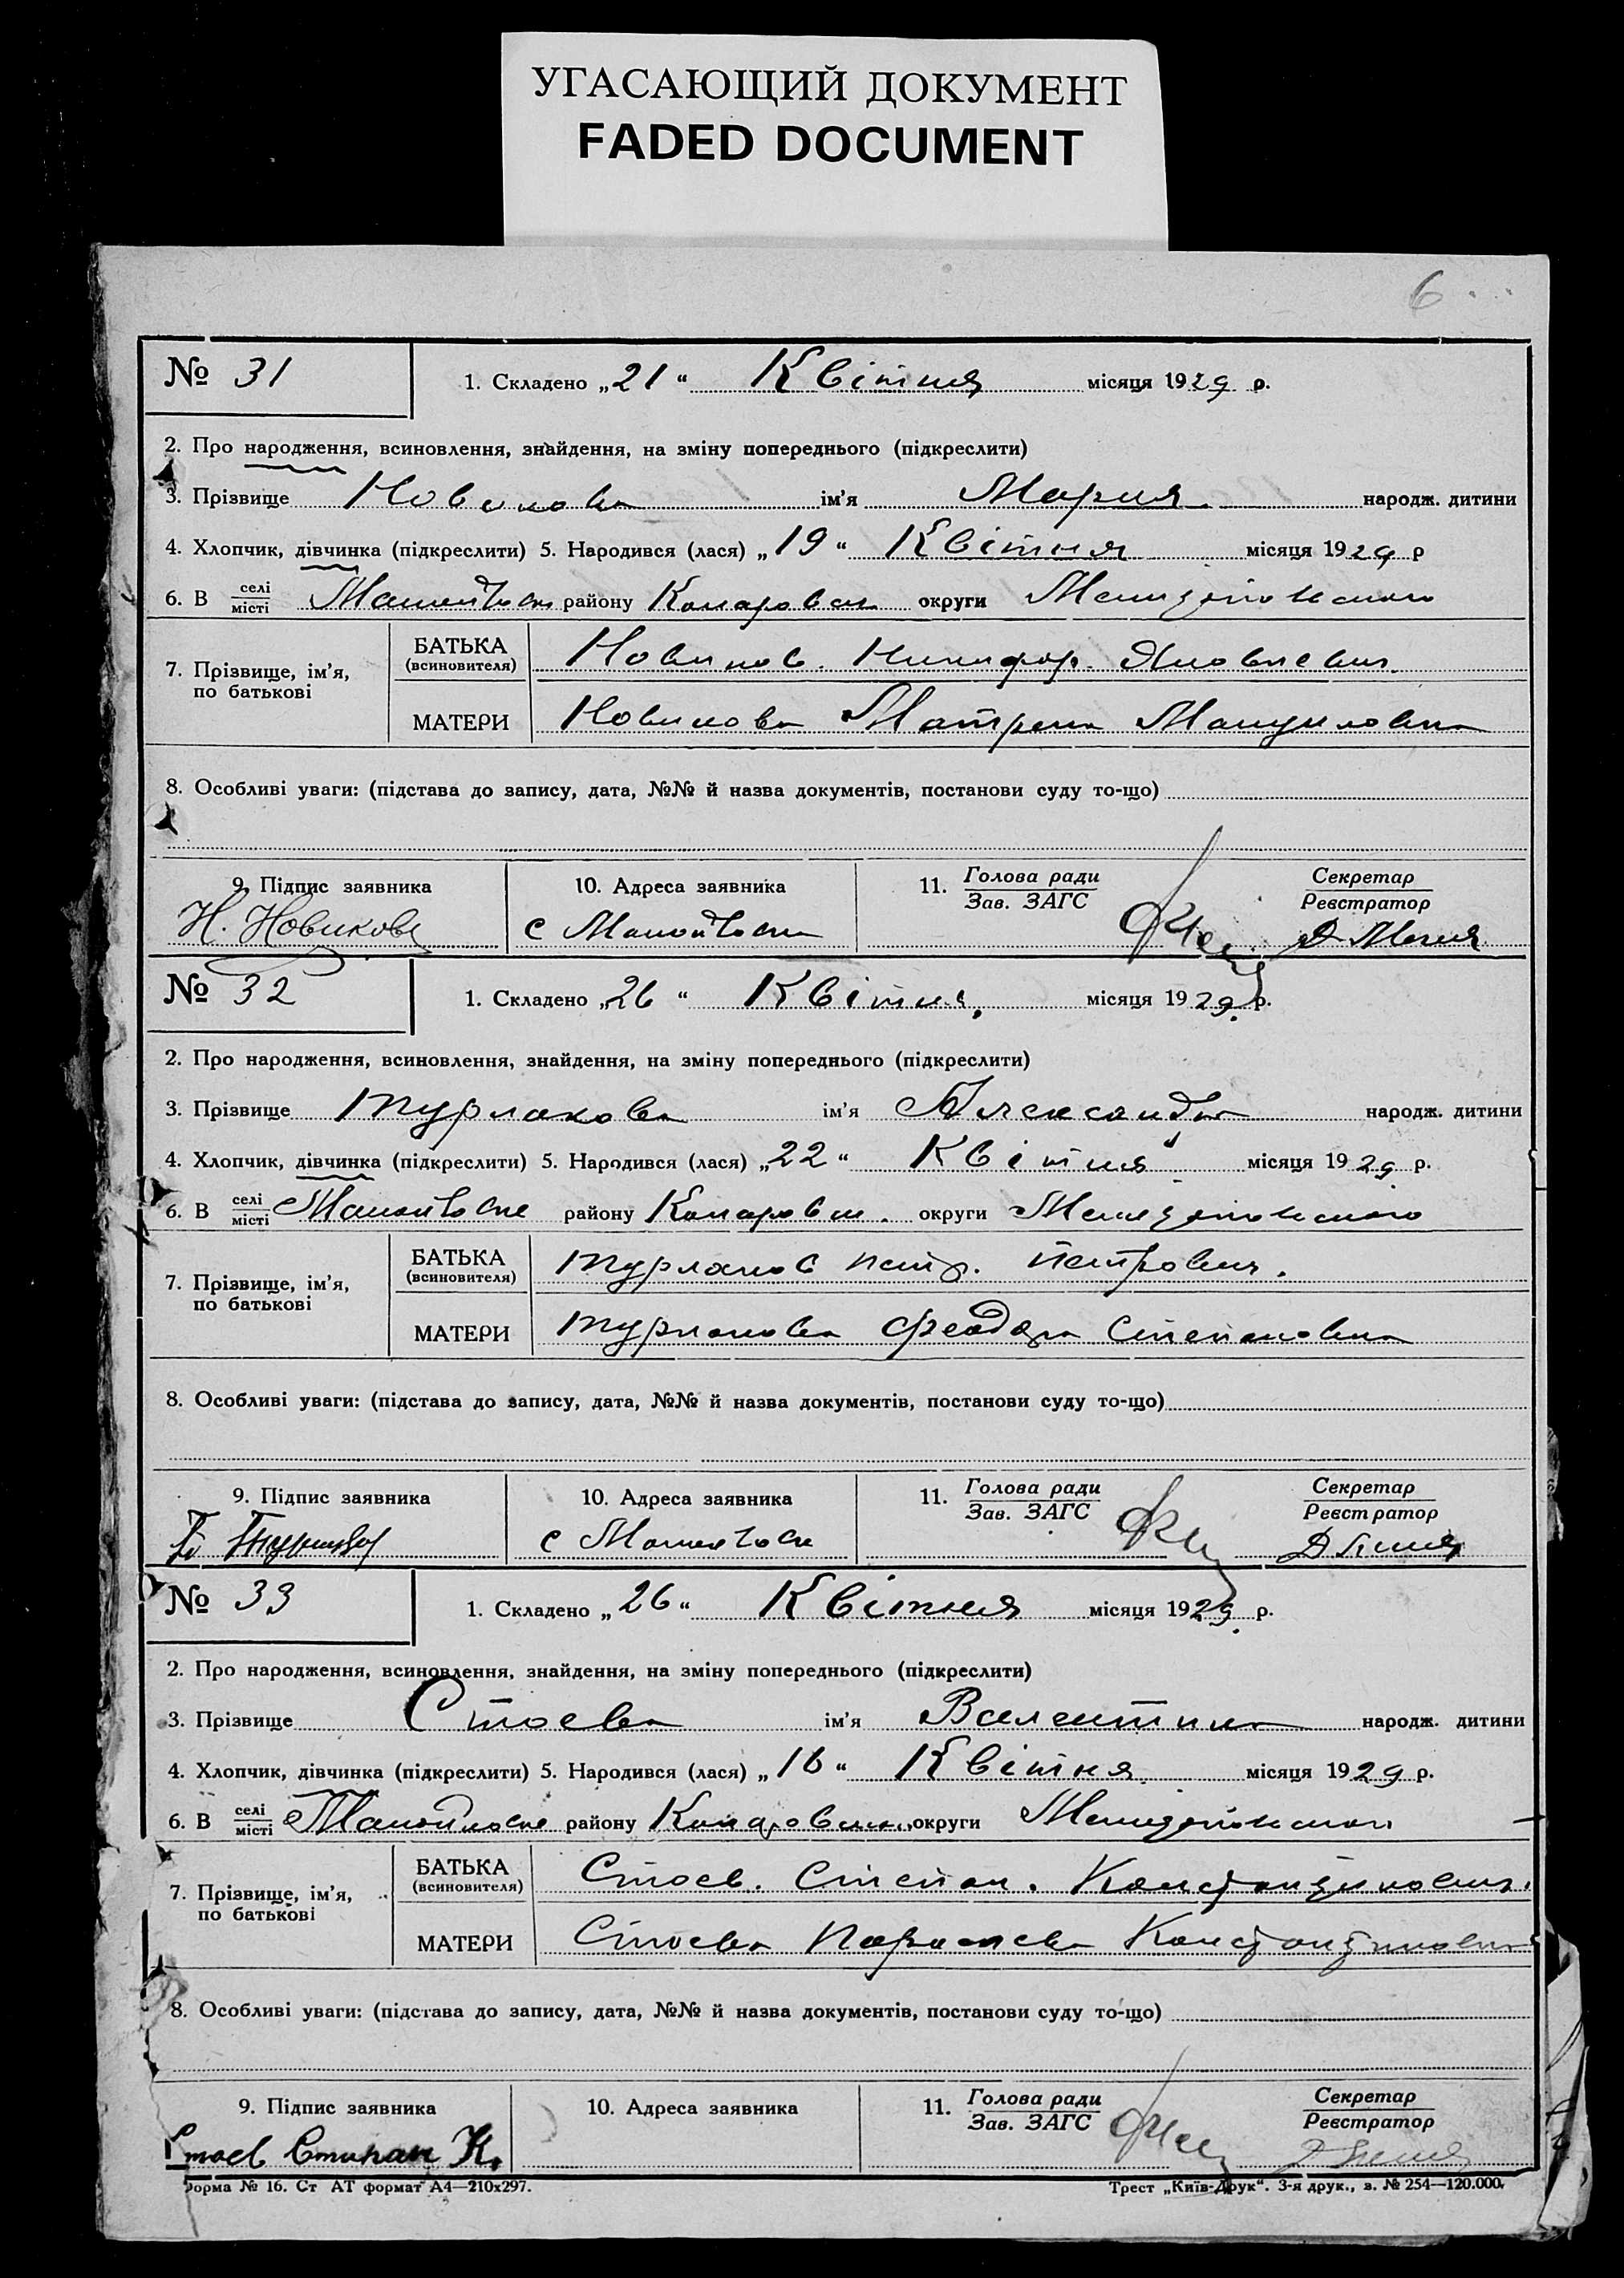 УГАСАЮЩИЙ ДОКУМЕНТ
FADED DOCUMENT
6
№ 31
1. Складено „21“ Квітня місяця 1929 р.
2. Про народження, всиновлення, знайдення, на зміну попереднього (підкреслити)
3. Прізвище Новикова ім’я Мария народж. дитини
4. Хлопчик, дівчинка (підкреслити) 5. Народився (лася) „19“ Квітня місяця 1929 р
6. В селі/місті району округи
7. Прізвище, ім’я, по батькові
БАТЬКА (всиновителя) Новиков Никифор
МАТЕРИ Новикова Матрена
8. Особливі уваги: (підстава до запису, дата, №№ й назва документів, постанови суду то-що)
9. Підпис заявника 10. Адреса заявника 11. Голова ради/Зав. ЗАГС Секретар/Реєстратор
Н. Новиков с
№ 32
1. Складено „26“ Квітня місяця 1929 р.
2. Про народження, всиновлення, знайдення, на зміну попереднього (підкреслити)
3. Прізвище Турлакова ім’я Александра народж. дитини
4. Хлопчик, дівчинка (підкреслити) 5. Народився (лася) „22“ Квітня місяця 1929 р.
6. В селі/місті району округи
7. Прізвище, ім’я, по батькові
БАТЬКА (всиновителя) Турлаков Петр. Петрович.
МАТЕРИ Турлакова Степановна
8. Особливі уваги: (підстава до запису, дата, №№ й назва документів, постанови суду то-що)
9. Підпис заявника 10. Адреса заявника 11. Голова ради/Зав. ЗАГС Секретар/Реєстратор
с
№ 33
1. Складено „26“ Квітня місяця 1929 р.
2. Про народження, всиновлення, знайдення, на зміну попереднього (підкреслити)
3. Прізвище Стоева ім’я Валентина народж. дитини
4. Хлопчик, дівчинка (підкреслити) 5. Народився (лася) „16“ Квітня місяця 1929 р.
6. В селі/місті району округи
7. Прізвище, ім’я, по батькові
БАТЬКА (всиновителя) Стоев. Степан. Константинович.
МАТЕРИ Стоева Константиновна
8. Особливі уваги: (підстава до запису, дата, №№ й назва документів, постанови суду то-що)
9. Підпис заявника 10. Адреса заявника 11. Голова ради/Зав. ЗАГС Секретар/Реєстратор
Стоев Стипан К.
Форма № 16. Ст АТ формат А4—210х297.
Трест „Київ-Друк“. 3-я друк., з. № 254—120.000.